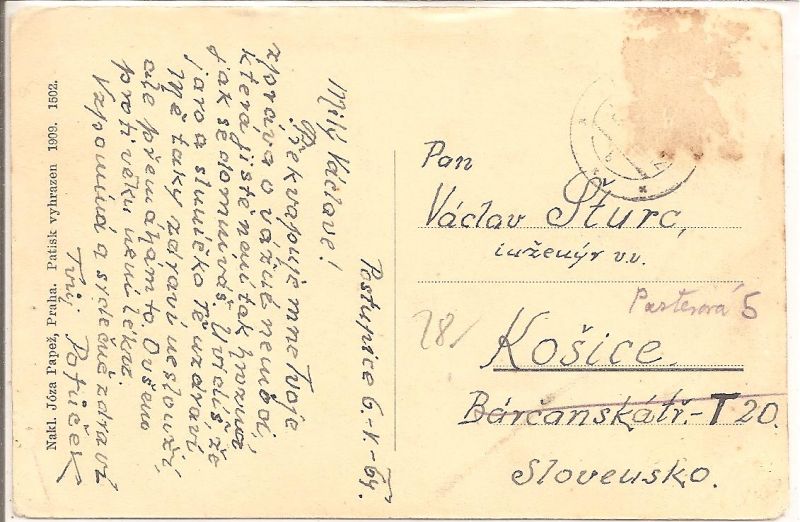 Nakl. Józa Papež, Praha. Patisk vyhrazen 1909. 1502.
Postupice 6.-V.-64.
Milý Václave!
Překvapuje mne Tvoje
zpráva o vážné nemoci,
která jistě není tak hrozivá
jak se domníváš. Uvidíš, že
jaro a sluníčko Tě uzdraví.
Mě taky zdraví neslouží
ale přemáhám to. Ovšem
proti věku není léku.
Vzpomíná a srdečně zdraví
Tvůj Potůček
Pan
Václav Šturc,
inženýr v.v.
Pasterová 5
28/
Košice.
Bárčanská tř.-T 20.
Slovensko.